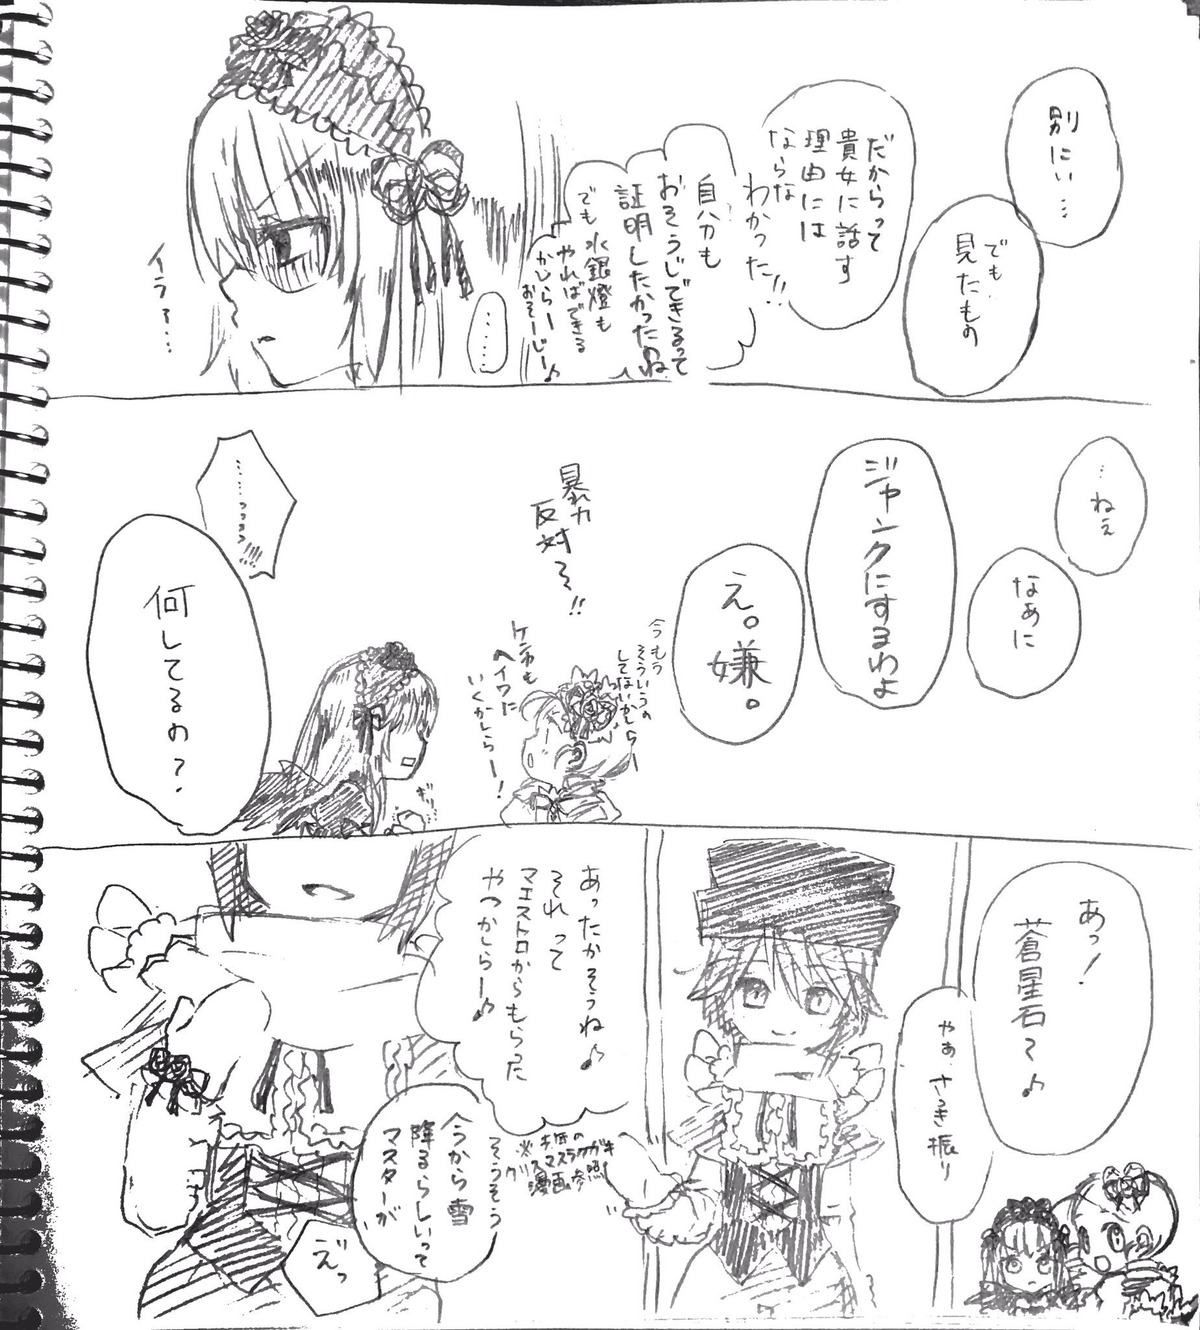 別にぃ…
でも
見たもの
だからって
貴女に話す
理由には
ならな
わかった!!
自分も
おそうじできるって
証明したかったのね
でも水銀燈も
やればできる
かしらーー
おそーじー♪
……
イラァ…
…ねぇ
なあに
ジャンクにするわよ
え。嫌。
今もう
そういうの
してないかしらー
暴力
反対〜!!
ケンカも
ヘイワに
いくかしらー!
ギリ
……っっっ!!!!
何してるの?
あっ!
蒼星石〜♪
やぁ さっき振り
あったかそうね♪
それって
マエストロからもらった
やつかしらー♪
そうそう
※去年の
クリスマスラクガキ
漫画参照
今から雪
降るらしいって
マスターが
え゛っ